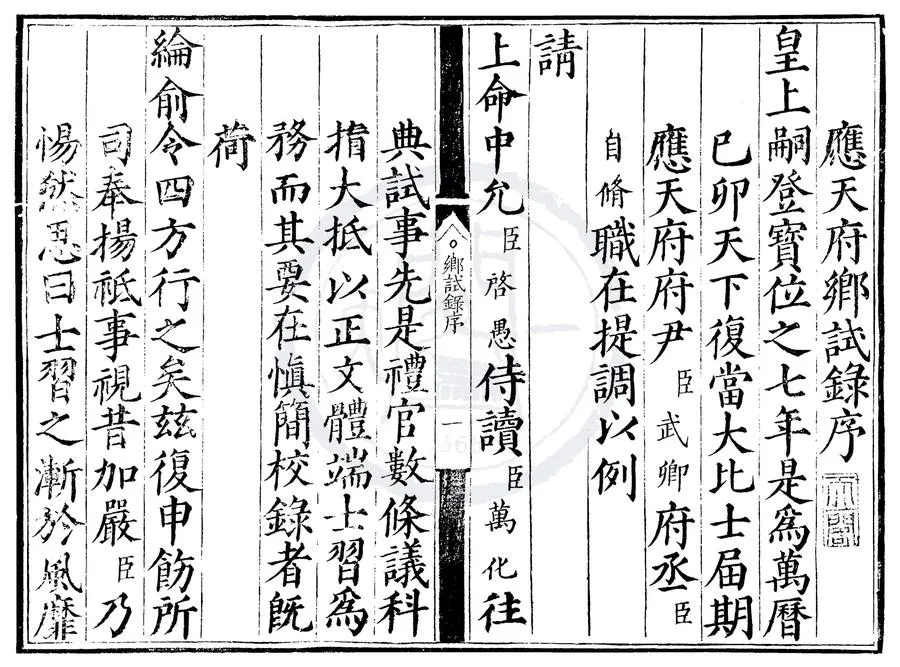 應天府鄉試錄序
皇上嗣登寶位之七年是爲萬曆
已卯天下復當大比士届期
應天府府尹臣武卿府丞臣
自脩職在提調以例
請
上命中允臣啓愚侍讀臣萬化往
鄉試錄序 一
典試事先是禮官數條議科
指大抵以正文體端士習爲
務而其要在慎簡校錄者既
荷
綸俞令四方行之矣兹復申飭所
司奉揚祇事視昔加嚴臣乃
惕然思曰士習之漸於風靡